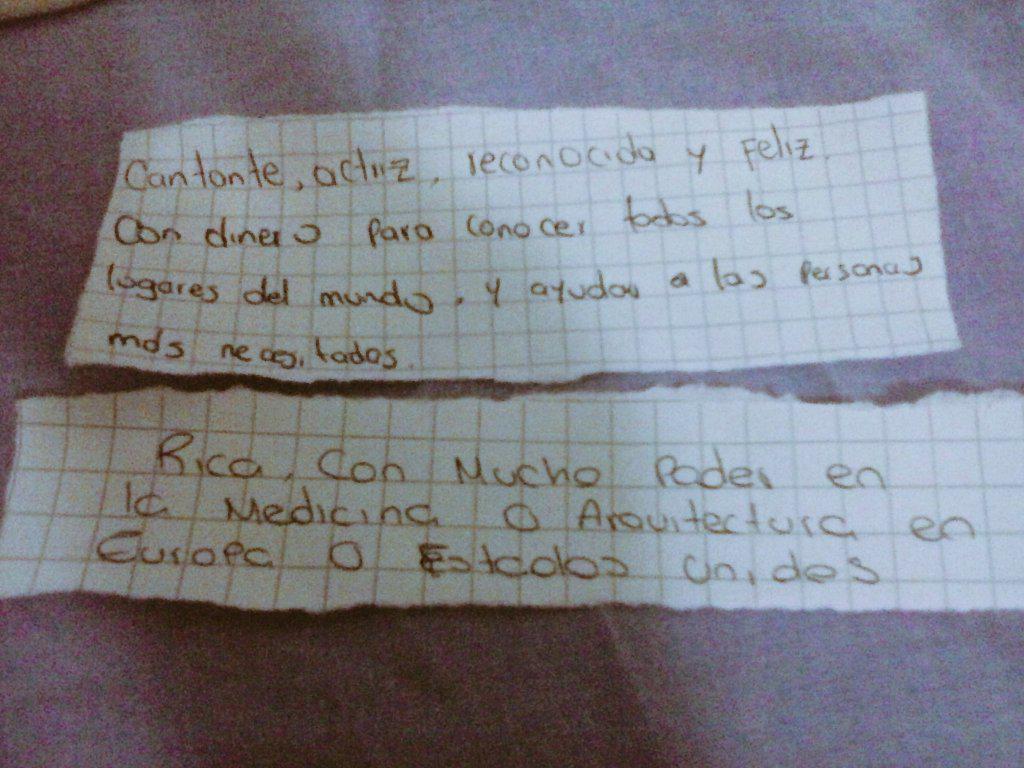 Cantante, actriz, reconocida y Feliz.
Con dinero para conocer todos los
lugares del mundo. y ayudar a las personas
más necesitadas.
Rica, Con Mucho Poder en
la Medicina O Arquitectura en
Europa O Estados Unidos